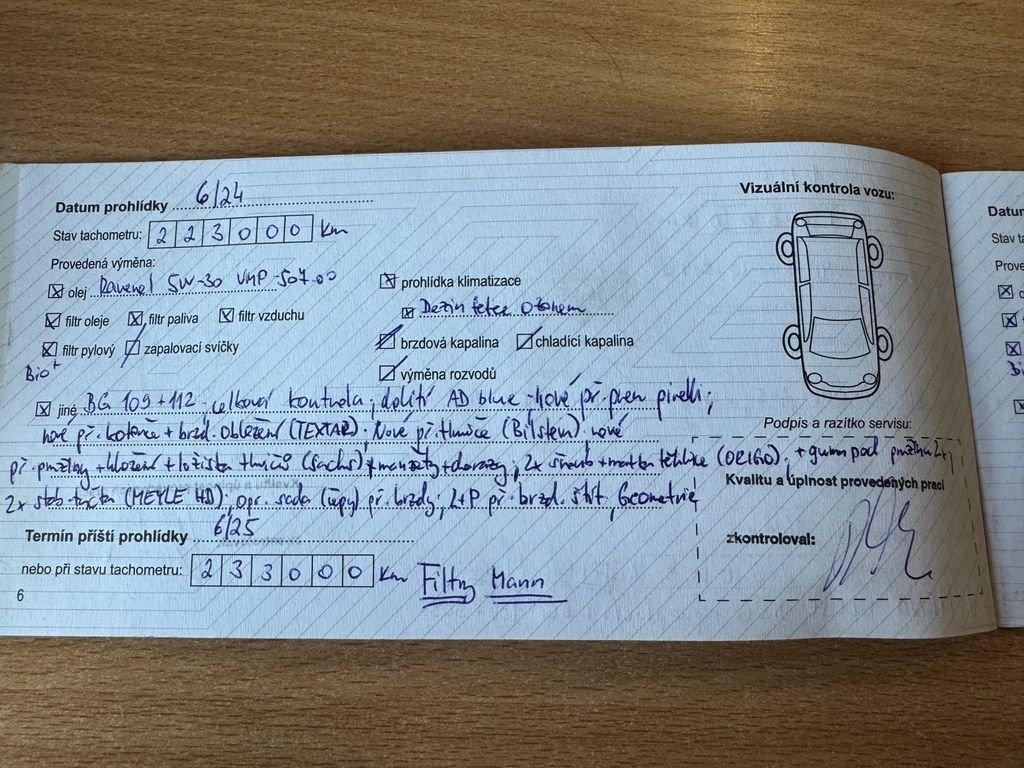 Datum prohlídky 6/24
Vizuální kontrola vozu:
Stav tachometru: 223000 Km
Provedená výměna:
olej Ravenol 5W-30 VMP 507.00
prohlídka klimatizace
Dezinfekce Ozonem
filtr oleje filtr paliva filtr vzduchu
brzdová kapalina chladící kapalina
filtr pylový zapalovací svíčky
Bio+
výměna rozvodů
jiné BG 109+112, celková kontrola, dolití AD blue, nové př. pneu pirelli;
Podpis a razítko servisu:
nové př. kotouče + brzd. obložení (TEXTAR); Nové př. tlumiče (Bilstein), nové
př. pružiny + uložení + ložiska tlumičů (Sachs) + manžety + dorazy, 2x šroub + matka těhlice (ORIGO), + gum pod pružinu 2x;
Kvalitu a úplnost provedených prací
2x stab. tyčka (MEYLE HD), opr. sada (čepy) př. brzdy; L+P př. brzd. štít, Geometrie,
Termín příští prohlídky 6/25
zkontroloval:
nebo při stavu tachometru: 233000 Km
Filtry Mann
6
Datum
Stav ta
Prove